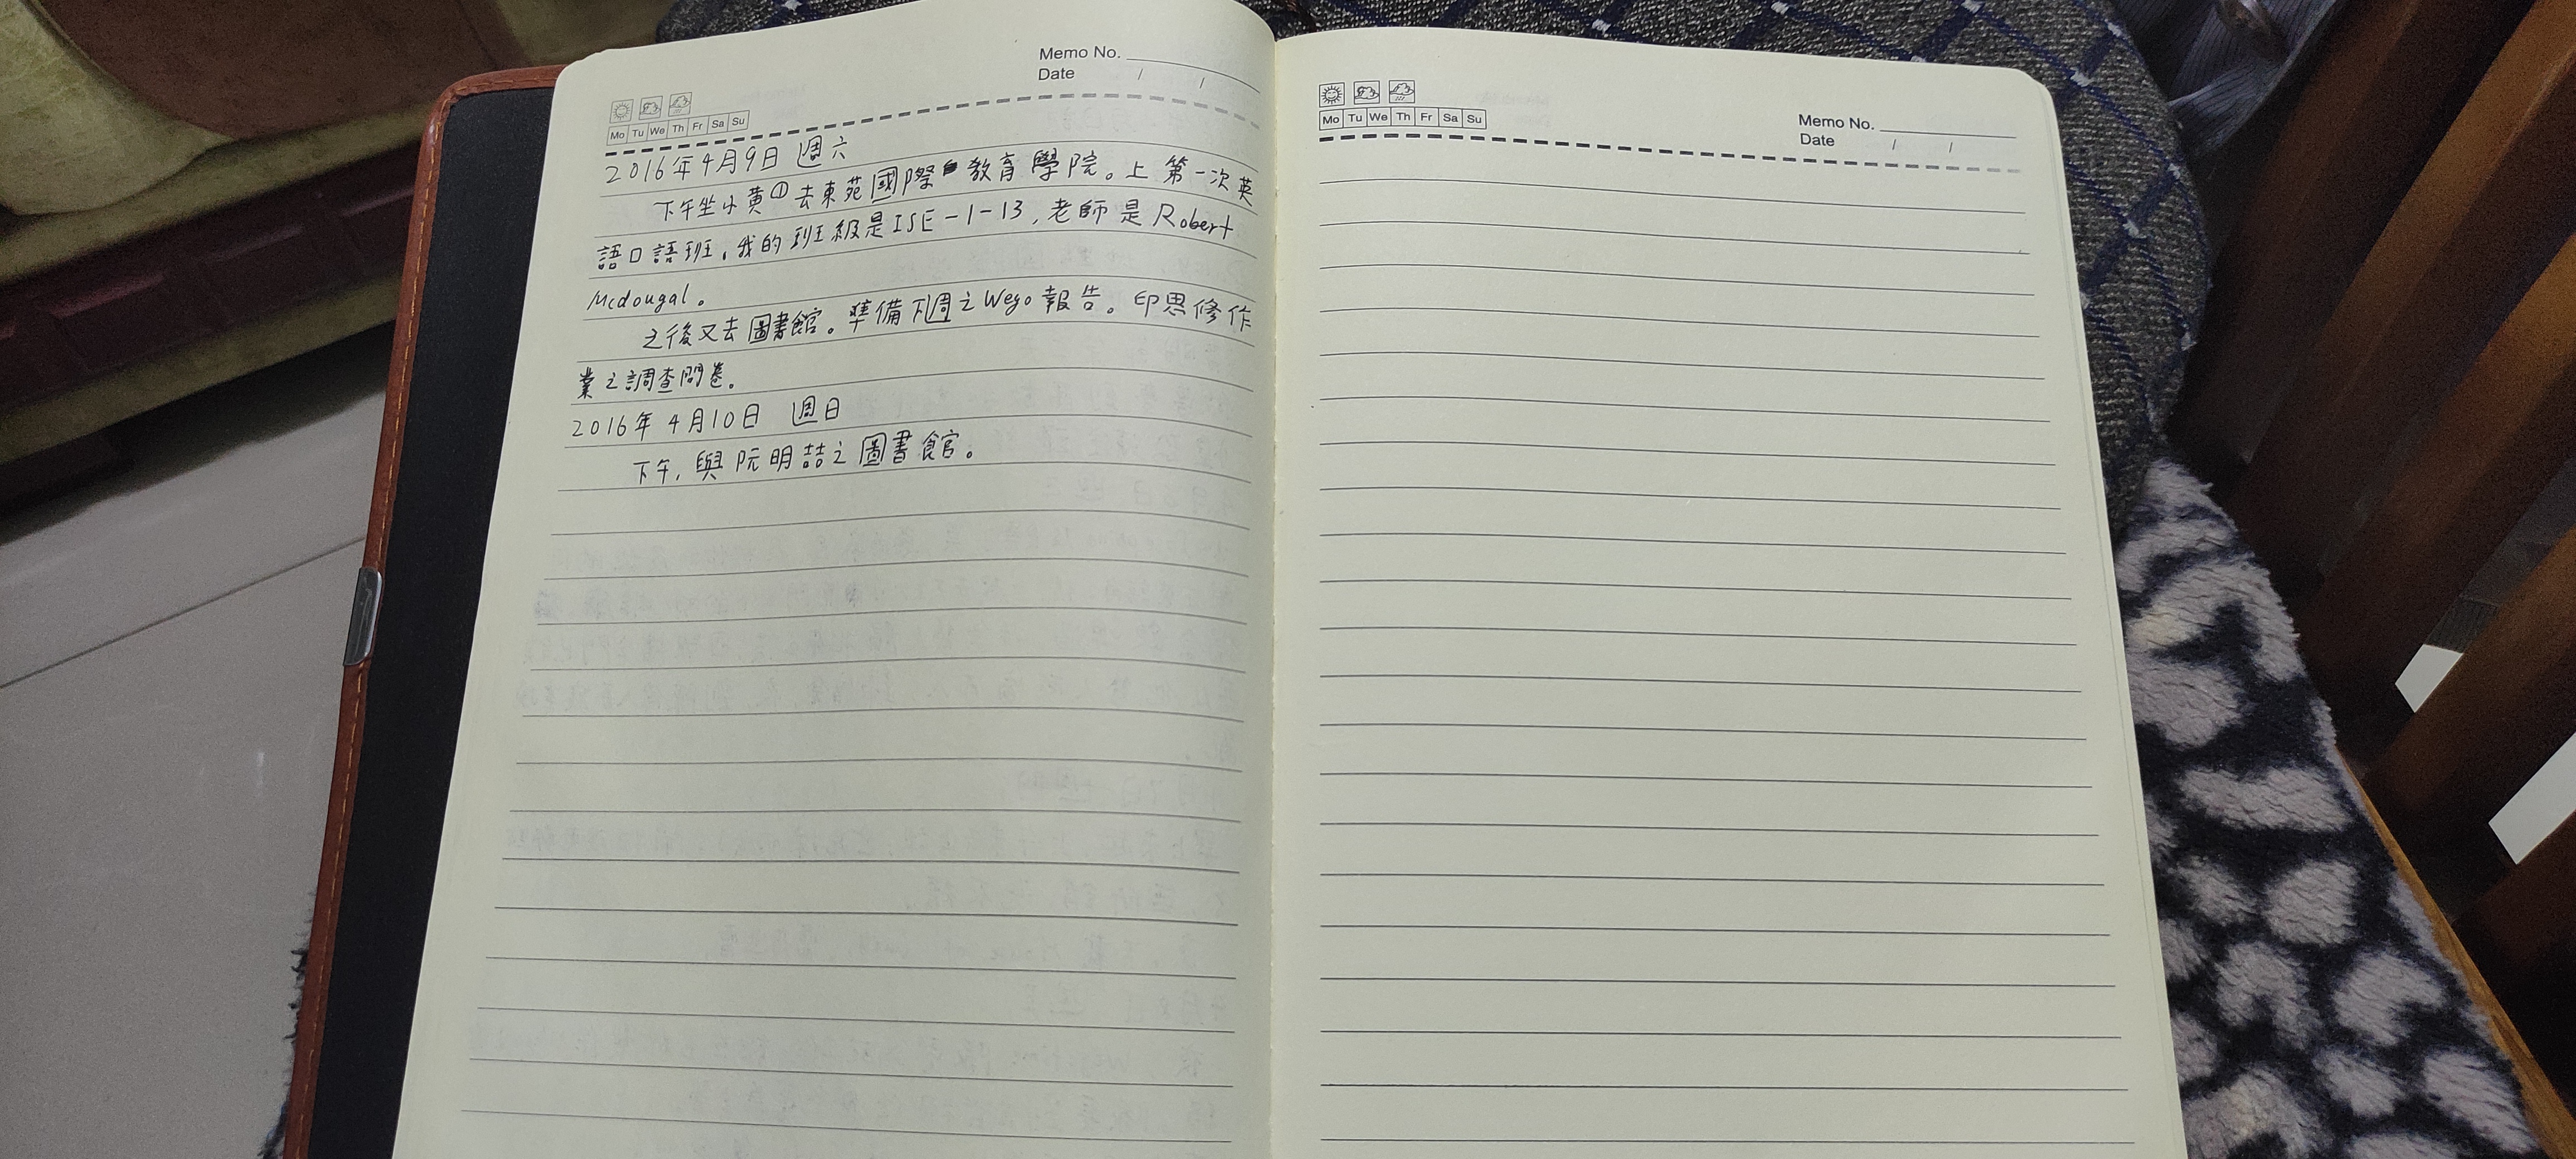 Memo No.
Date / /
Mo Tu We Th Fr Sa Su
2016年4月9日 週六
下午坐小黃①去東苑國際教育學院。上第一次英
語口語班,我的班級是ISE-1-13,老師是Robert
Mcdougal。
之後又去圖書館。準備下週之Wego報告。印思修作
業之調查問卷。
2016年4月10日 週日
下午,與阮明喆之圖書館。
Memo No.
Date / /
Mo Tu We Th Fr Sa Su